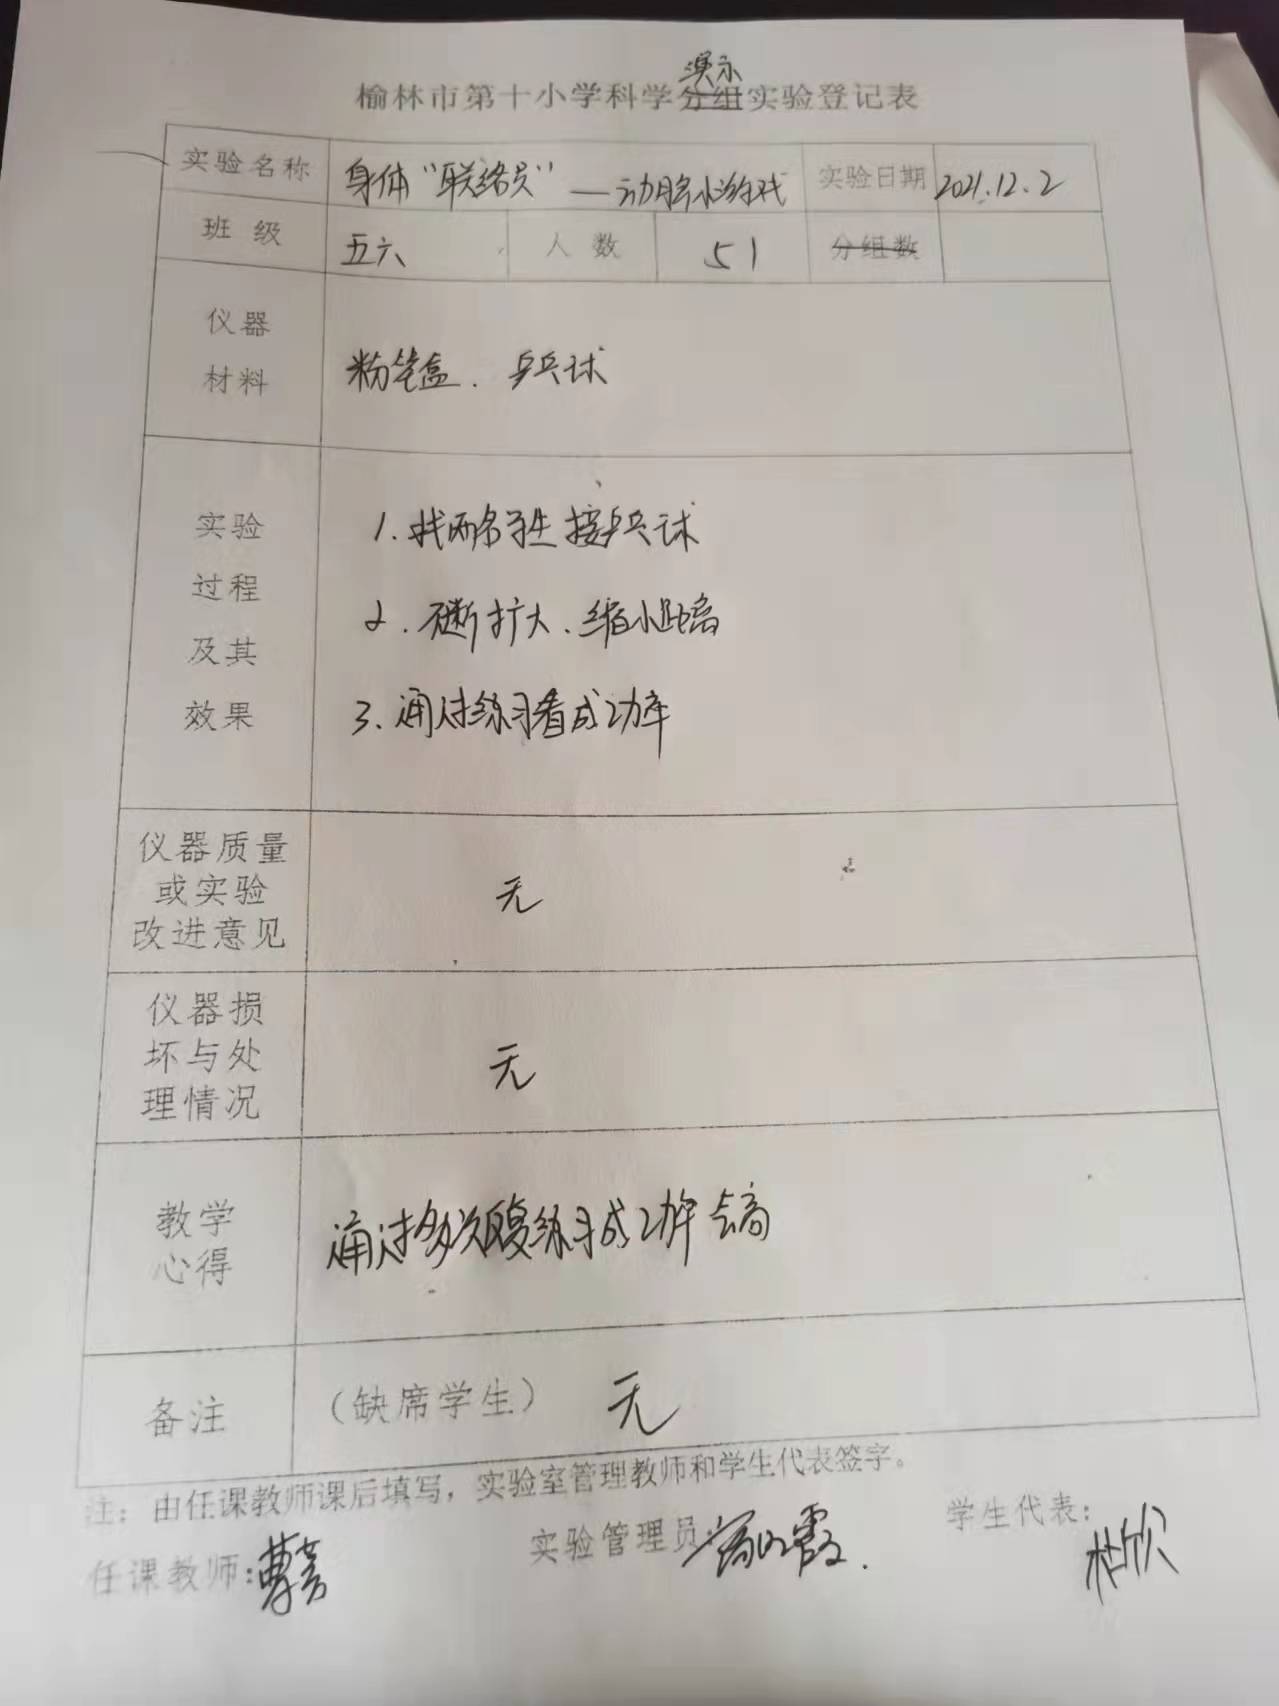 演示
榆林市第十小学科学分组实验登记表
实验名称 身体“联络员”—动脑小游戏 实验日期 2021.12.2
班级 五六 人数 51 分组数
仪器
材料
粉笔盒、乒乓球
实验
过程
及其
效果
1.找两名学生接乒乓球
2.不断扩大、缩小距离
3.通过练习看成功率
仪器质量
或实验
改进意见
无
仪器损
坏与处
理情况
无
教学
心得
通过多次反复练习成功率会高
备注 (缺席学生) 无
注:由任课教师课后填写,实验室管理教师和学生代表签字。
任课教师: 实验管理员: 学生代表:
杜欣